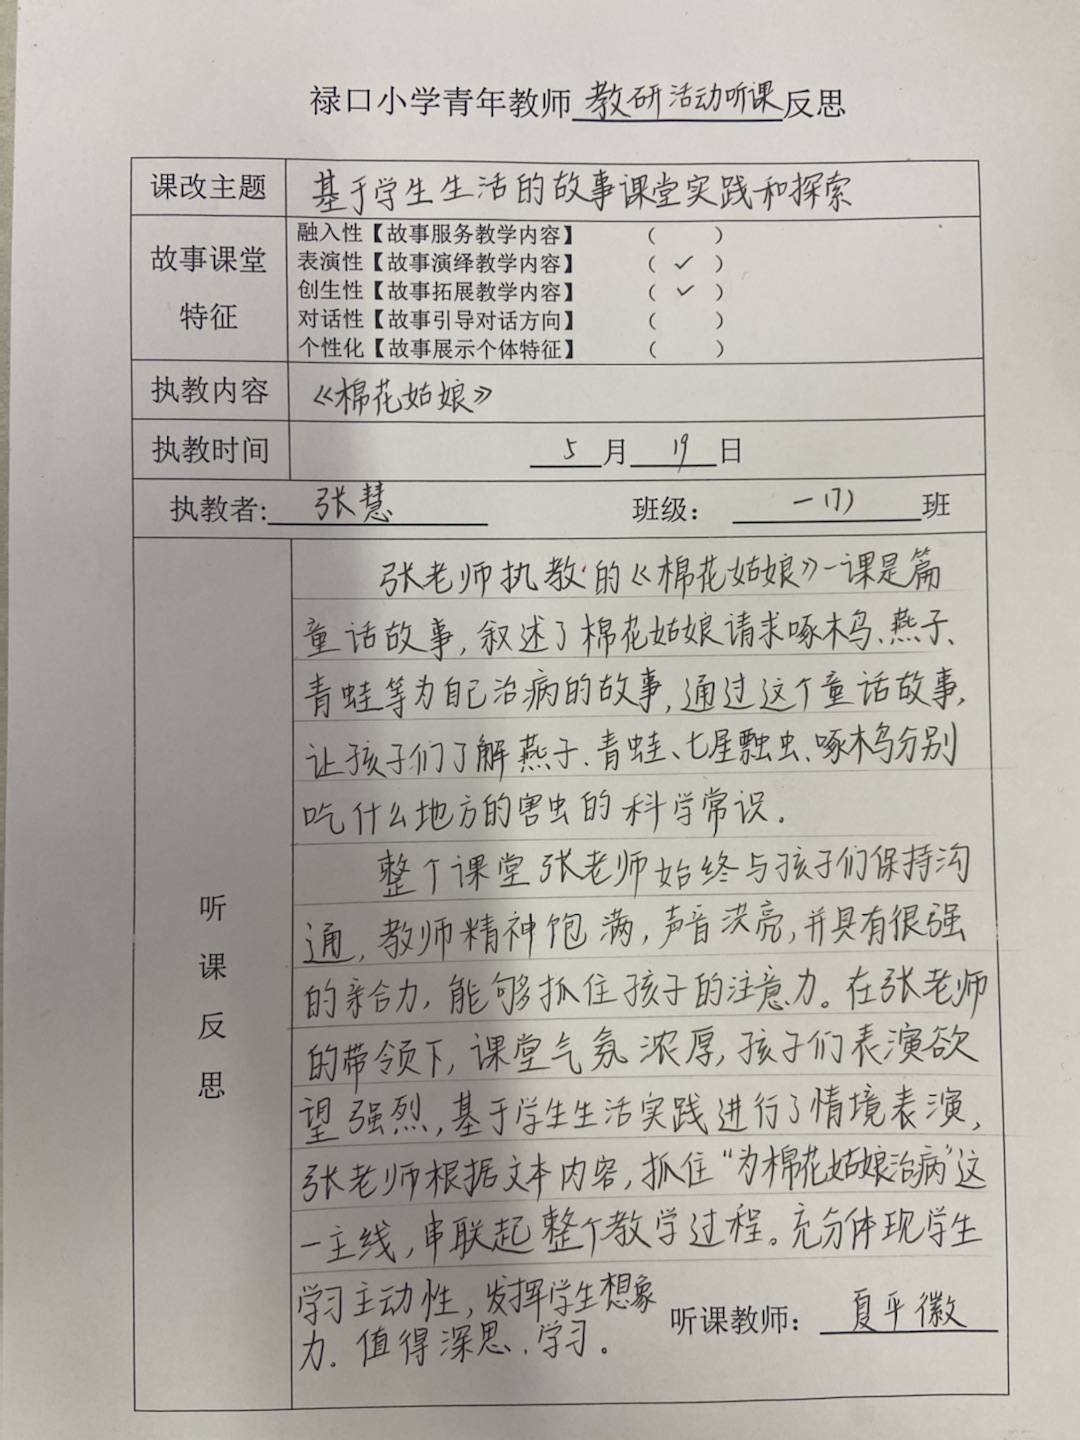 禄口小学青年教师教研活动听课反思
课改主题 基于学生生活的故事课堂实践和探索
故事课堂特征
融入性【故事服务教学内容】 （ ）
表演性【故事演绎教学内容】 （ ✓ ）
创生性【故事拓展教学内容】 （ ✓ ）
对话性【故事引导对话方向】 （ ）
个性化【故事展示个体特征】 （ ）
执教内容 《棉花姑娘》
执教时间 5月19日
执教者：张慧 班级：一（7）班
听课反思
张老师执教的《棉花姑娘》一课是篇
童话故事，叙述了棉花姑娘请求啄木鸟、燕子、
青蛙等为自己治病的故事，通过这个童话故事，
让孩子们了解燕子、青蛙、七星瓢虫、啄木鸟分别
吃什么地方的害虫的科学常识。
整个课堂张老师始终与孩子们保持沟
通，教师精神饱满，声音洪亮，并具有很强
的亲合力，能够抓住孩子的注意力。在张老师
的带领下，课堂气氛浓厚，孩子们表演欲
望强烈，基于学生生活实践进行了情境表演，
张老师根据文本内容，抓住“为棉花姑娘治病”这
一主线，串联起整个教学过程。充分体现学生
学习主动性，发挥学生想象
力。值得深思、学习。
听课教师：夏平徽